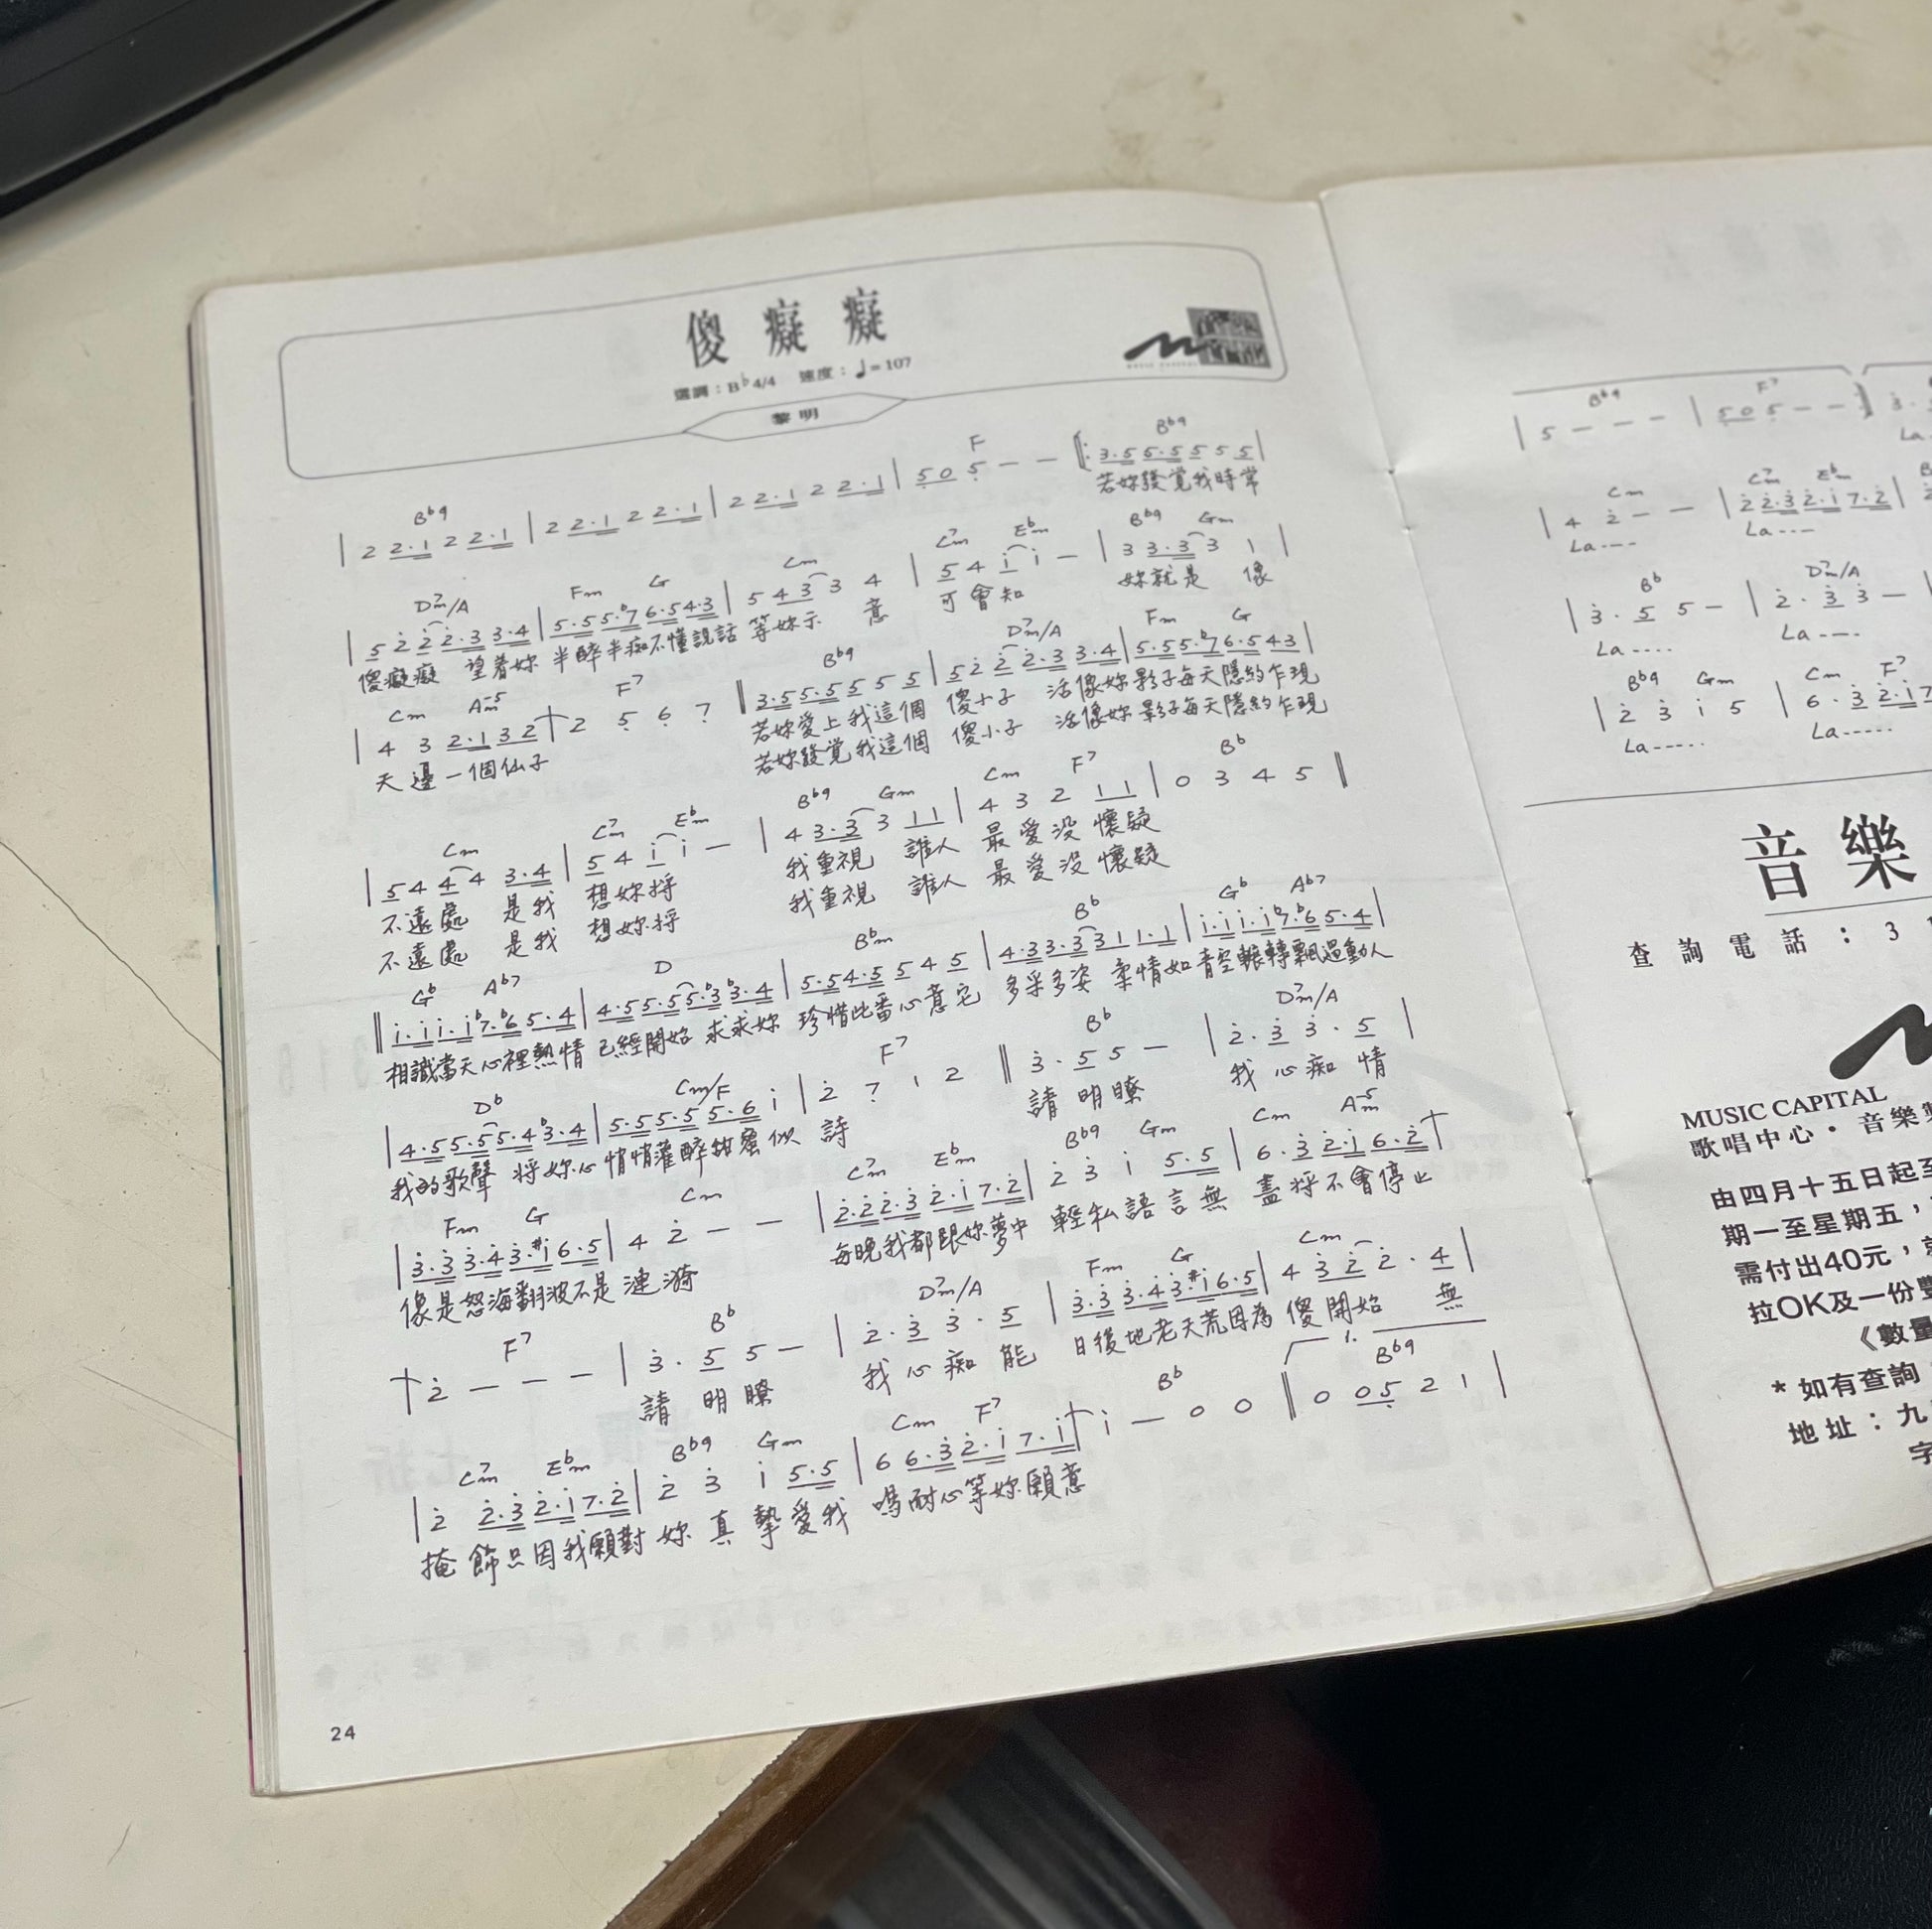 傻癡癡
選調：B♭4/4 速度：♩=107
黎明
B♭9 F B♭9
| 2 2·1 2 2·1 | 2 2·1 2 2·1 | 2 2·1 2 2·1 | 5 0 5 — — ‖: 3·5 5·5 5 5 5 |
若妳發覺我時常
D7m/A Fm G Cm C7m E♭m B♭9 Gm
| 5 2 2 2·3 3·4 | 5·5 5·♭7 6·5 4·3 | 5 4 3 3 4 | 5 4 i i — | 3 3·3 3 1 |
傻癡癡 望着妳 半醉半痴不懂說話 等妳示 意 可會知 妳就是 像
Cm Am-5 F7 B♭9 D7m/A Fm G
| 4 3 2·1 3 2 † 2 5 6 7 ‖ 3·5 5·5 5 5 5 | 5 2 2 2·3 3·4 | 5·5 5·♭7 6·5 4 3 |
天邊一個仙子 若妳愛上我這個 傻小子 活像妳影子每天隱約乍現
若妳發覺我這個 傻小子 活像妳影子每天隱約乍現
Cm C7m E♭m B♭9 Gm Cm F7 B♭
| 5 4 4 4 3·4 | 5 4 i i — | 4 3·3 3 1 1 | 4 3 2 1 1 | 0 3 4 5 ‖
不遠處 是我 想妳將 我重視 誰人 最愛沒懷疑
不遠處 是我 想妳將 我重視 誰人 最愛沒懷疑
G♭ A♭7 D B♭m B♭ G♭ A♭7
‖ i·i i·i ♭7·♭6 5·4 | 4·5 5·5 5·♭3 ♭3·4 | 5·5 4·5 5 4 5 | 4·3 3·3 3 1 1·1 | i·i i·i ♭7·♭6 5·4 |
相識當天心裡熱情 已經開始 求求妳 珍惜此番心意它 多采多姿 柔情如青空輾轉飄過動人
D♭ Cm/F F7 B♭ D7m/A
| 4·5 5·5 5·4 ♭3·4 | 5·5 5·5 5·6 i | 2 7 1 2 ‖ 3·5 5 — | 2·3 3·5 |
我的歌聲 將妳心 悄悄灌醉甜蜜似 詩 請明瞭 我心痴情
Fm G Cm C7m E♭m B♭9 Gm Cm Am-5
| 3·3 3·4 3·#i 6·5 | 4 2 — — | 2·2 2·3 2·i 7·2 | 2 3 i 5·5 | 6·3 2·i 6·2 †
像是怒海翻波不是漣漪 每晚我都跟妳夢中 輕私語言無 盡將不會停止
F7 B♭ D7m/A Fm G Cm
† 2 — — — | 3·5 5 — | 2·3 3·5 | 3·3 3·4 3·#i 6·5 | 4 3 2 2·4 |
請明瞭 我心痴能 日後地老天荒因為 傻開始 無
C7m E♭m B♭9 Gm Cm F7 B♭ 1. B♭9
| 2 2·3 2·i 7·2 | 2 3 i 5·5 | 6 6·3 2·i 7·i † i — 0 0 ‖ 0 0 5 2 1 |
掩飾只因我願對 妳真摯愛我 嗎耐心等妳願意
24
B♭9 F7
| 5 — — — | 5 0 5 — — :‖ 3·
La
Cm C7m E♭m
| 4 2 — — | 2 2·3 2·i 7·2 |
La---- La----
B♭ D7m/A
| 3·5 5 — | 2·3 3 — |
La---- La----
B♭9 Gm Cm F7
| 2 3 i 5 | 6·3 2·i 7
La----- La-----
音樂
查詢電話：3
MUSIC CAPITAL
歌唱中心・音樂
由四月十五日起至
期一至星期五，
需付出40元，
拉OK及一份
《數量
*如有查詢
地址：九